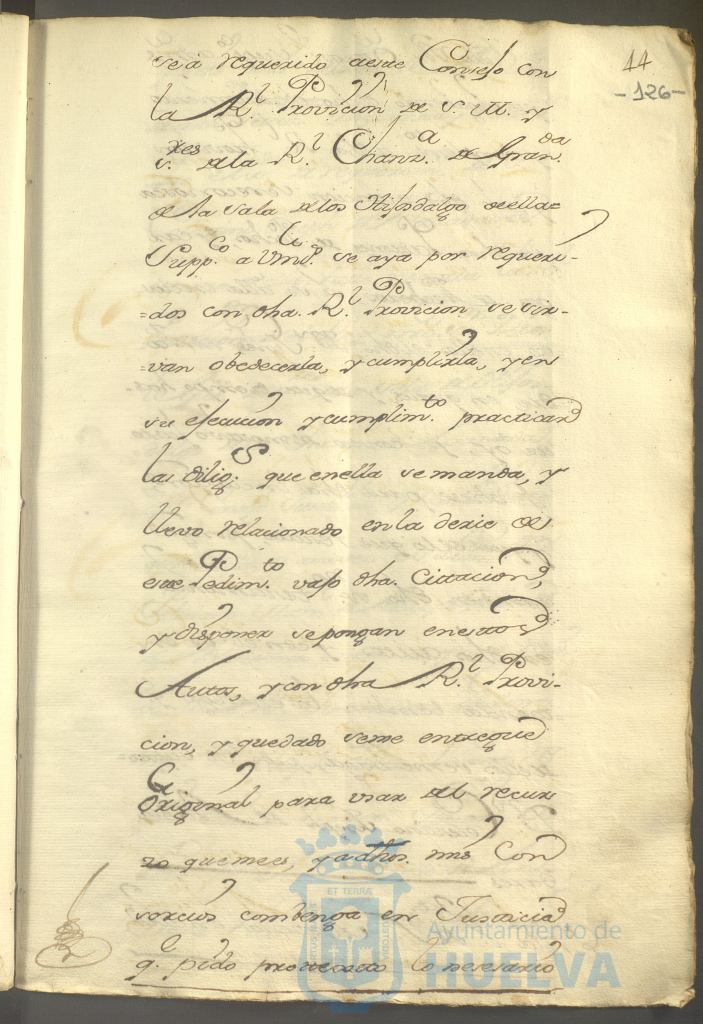 44
-126-
sea requerido aeste Consejo con
la Rl. Provicion de S. M. y
s.res de la Rl. Chanz.a de Gran.da
de la Sala de los Hijosdalgo de ella=
Supp.co a Vmd.s se aya por requeri-
=dos con dha. Rl. Provicion se sir-
-van obedecerla, y cumplirla, y en
su ejecucion y cumplim.to practicar
las dilig.s que en ella se manda, y
llevo relacionado en la serie de
este Pedim.to vajo dha. Citacion,
y disponer se pongan en estos
Autos, y con dha Rl. Provi-
cion, y quedado seme entregue
original para usar del recur
so que mees, y a dhos. mis Con
sorcios combenga, en Justicia
q.e pido protexto lo nesesario
ET TERRÆ
Ayuntamiento de
HUELVA